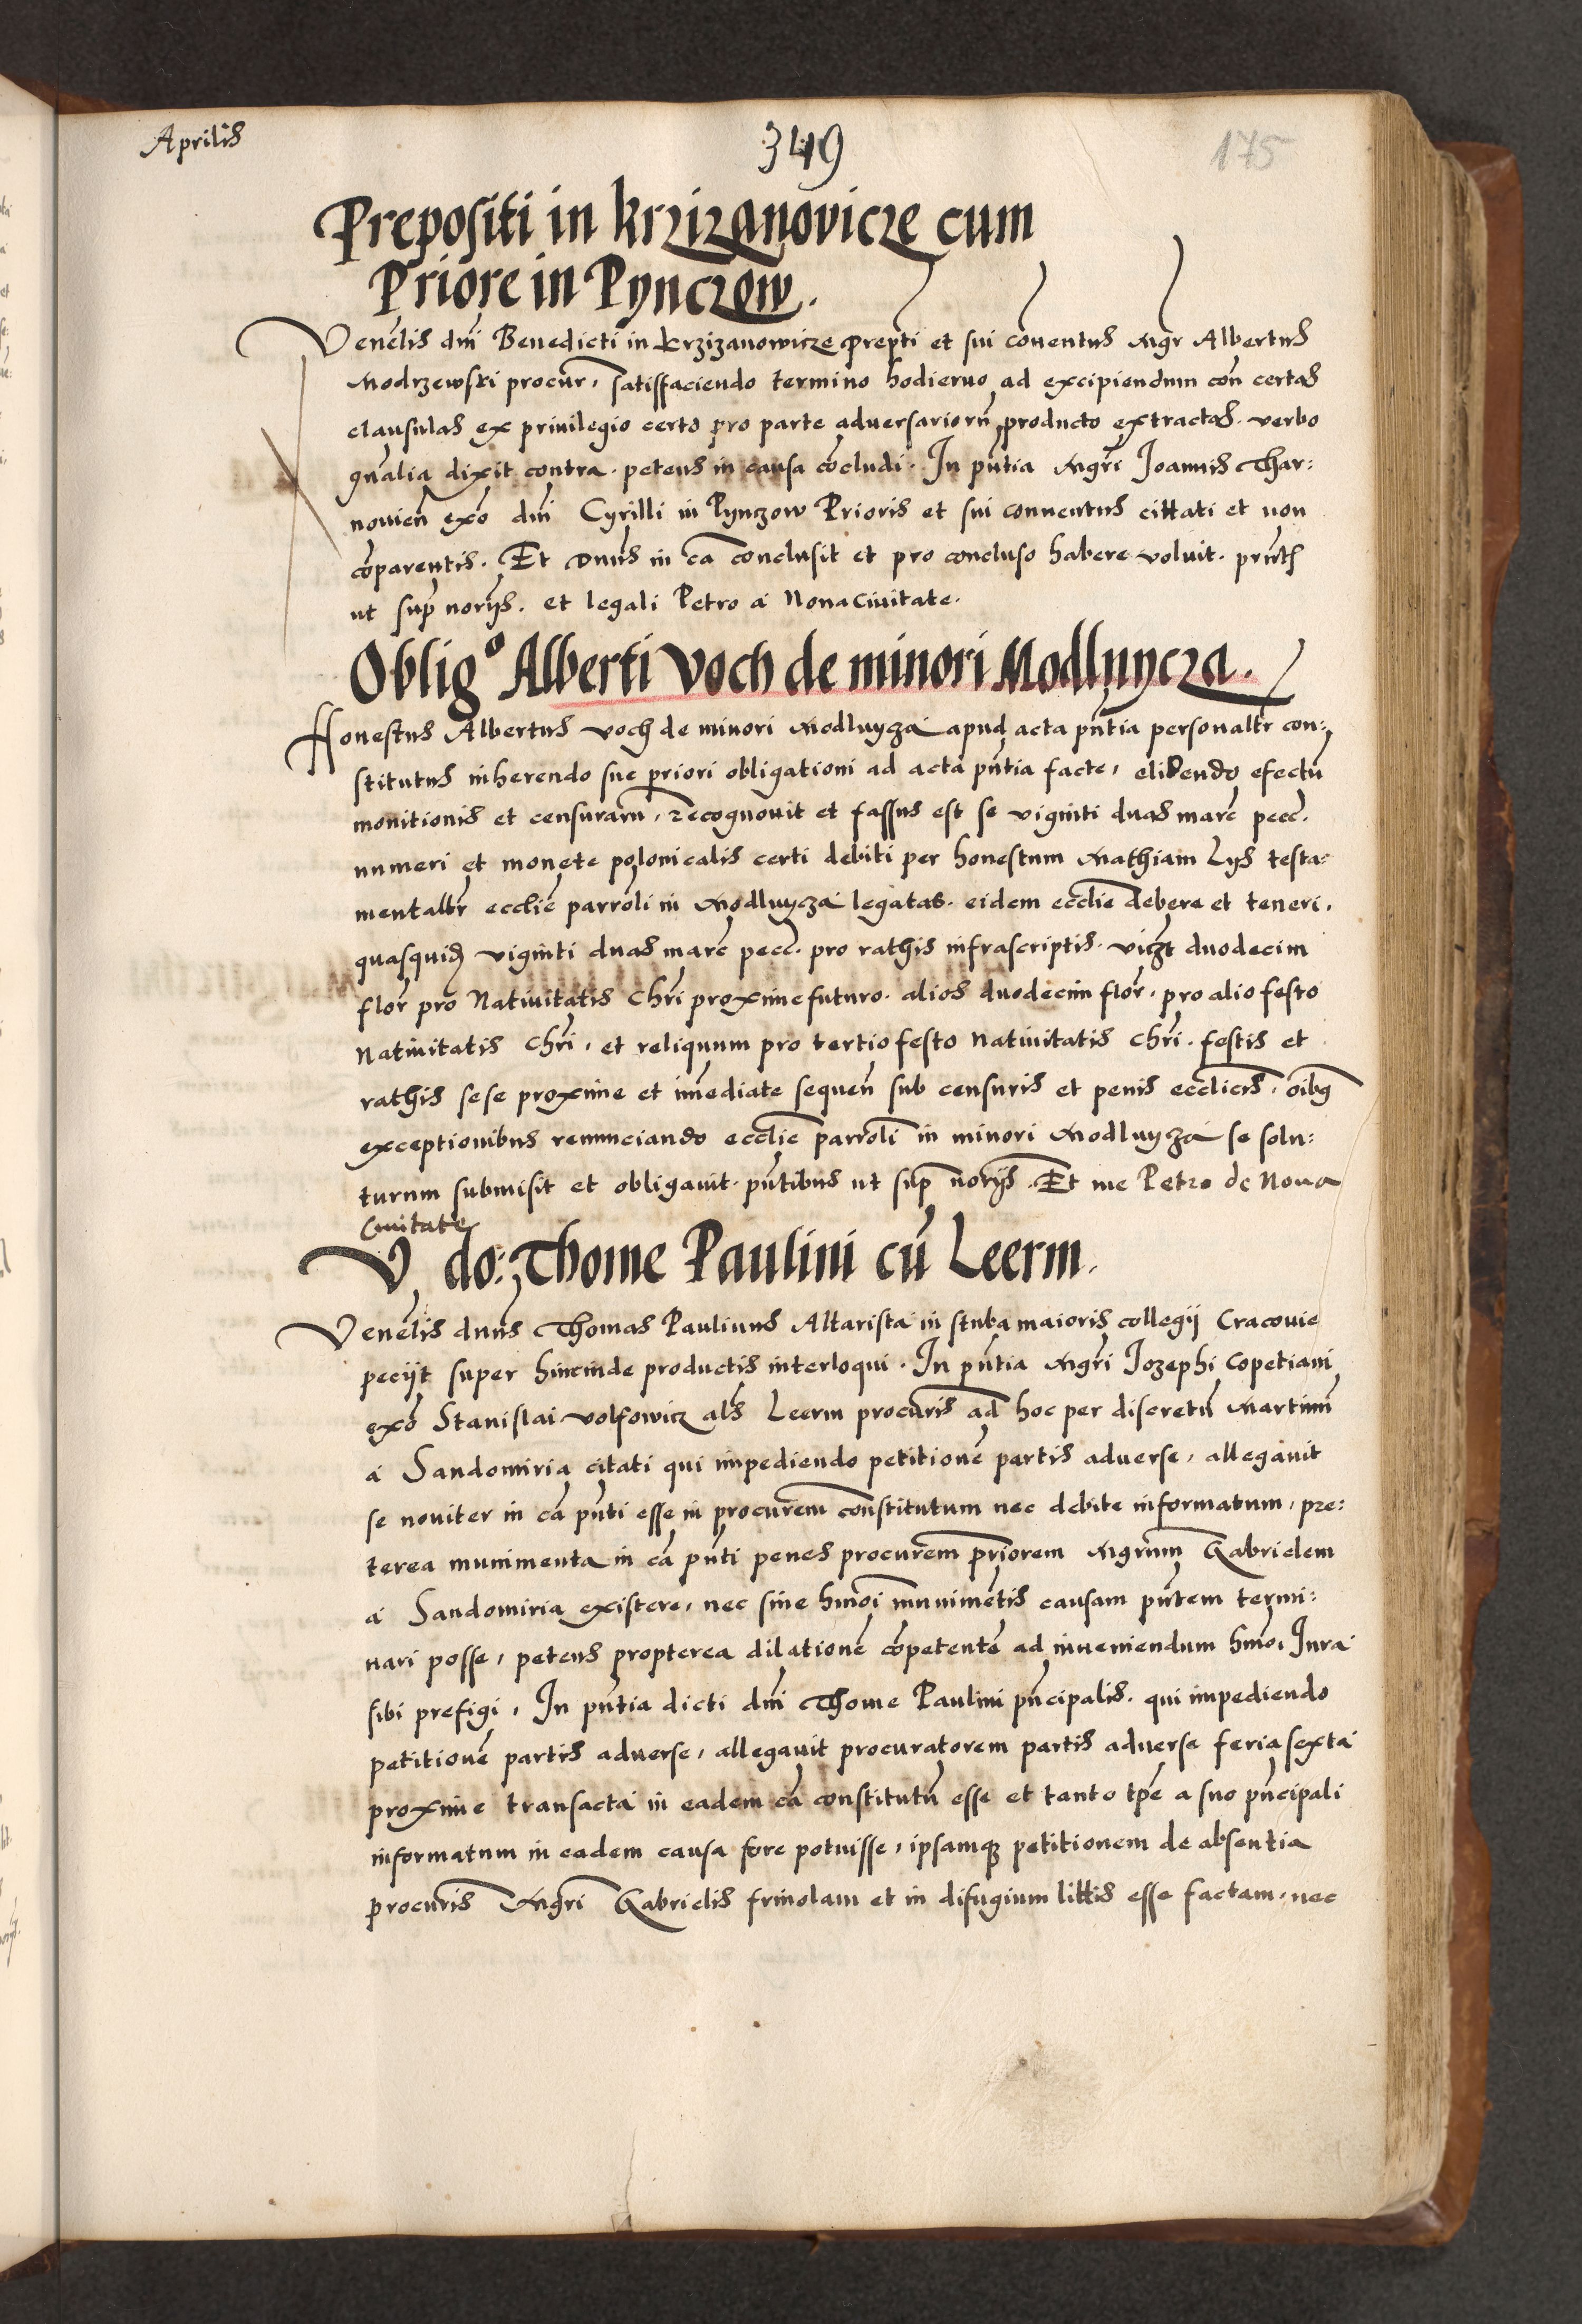 Aprilis
349
175
Prepositi in krzizanovicze cum
Priore in Pynczow.
Venelis dni Benedicti in krzizanowicze prepti et sui conentus Mgr Albertus
Modrzewski procur, satisfaciendo termino hodierno ad excipiendum con certas
clausulas ex privilegio certo pro parte adversarioru producto extractas. verbo
gnalia dixit contra. petens in causa cocludi. In pntia Mgri Joannis Thar:
novien exo dni Cyrilli in Pynczow Prioris et sui conventus cittati et non
coparentis. Et Dnus in ca conclusit et pro concluso habere voluit. prntib
ut sup noriis. et legali Petro a Nova Civitate.
Oblig° Alberti Voch de minori Modlnycza.
Honestus Albertus Voch de minori Modlnycza apud acta pntia personaltr con:
stitutus inherendo sue priori obligationi ad acta pntia facte, elidendo efectu
monitionis et censuraru, recognovit et fassus est se viginti duas marc pecc.
numeri et monete polonicalis certi debiti per honestum Mathiam Lys testa:
mentaltr ecclie parroli in Modlnycza legatas. eidem ecclie debere et teneri.
quasquid viginti duas marc pecc. pro rathis infrascriptis. viczt duodecim
flor pro Nativitatis Chri proxime futuro. alios duodecim flor. pro alio festo
Nativitatis Chri, et reliquum pro tertio festo Nativitatis Chri. festis et
rathis sese proxime et imediate sequen sub censuris et penis ecclicis, oibq
exceptionibus renunciando ecclie parroli in minori Modlnycza se solu:
turum submisit et obligavit. pntibus ut sup noriis. Et me Petro de Nova
Civitate
V. do: Thome Paulini cu Leerm.
Venelis dnus Thomas Paulinus Altarista in stuba maioris collegij Cracovie
peciit super hincinde productis interloqui. In pntia Mgri Jozephi Copetiani
exo Stanislai Volfowicz als Leerm procuris ad hoc per discretu Martinu
a Sandomiria citati qui impediendo petitione partis adverse, allegavit
se noviter in ca pnti esse in procurem constitutum nec debite informatum, pre:
terea munimenta in ca pnti penes procurem priorem Mgrum Gabrielem
a Sandomiria existere, nec sine hmoi munimetis causam pntem termi:
nari posse, petens propterea dilatione copetente ad inveniendum hmoi Jura
sibi prefigi, In pntia dicti dni Thome Paulini pncipalis. qui impediendo
petitione partis adverse, allegavit procuratorem partis adverse feria sexta
proxime transacta in eadem ca constitutu esse et tanto tpe a suo pncipali
informatum in eadem causa fore potuisse, ipsamq petitionem de absentia
procuris Mgri Gabrielis frivolam et in difugium littis esse factam, nec